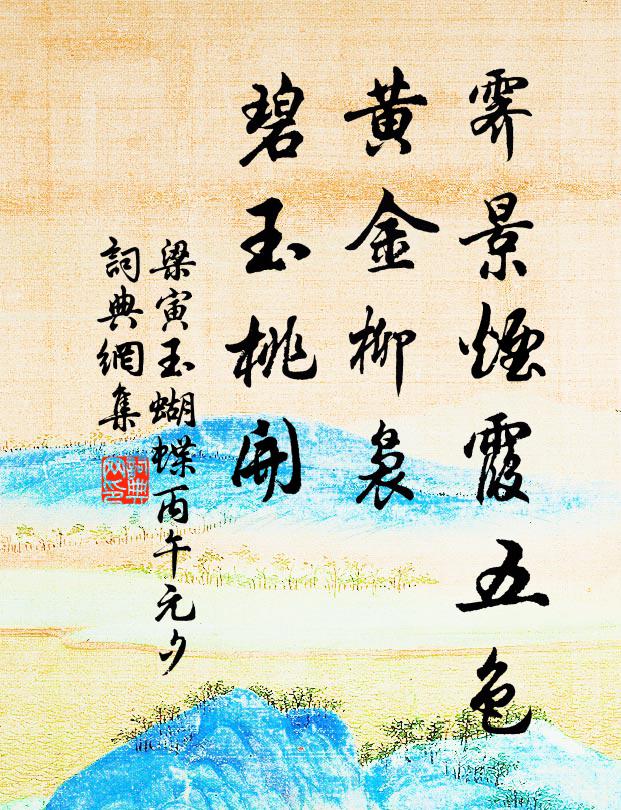 霽景煙霞五色
黃金柳裊
碧玉桃開
梁寅玉蝴蝶丙午元夕
詞典網集